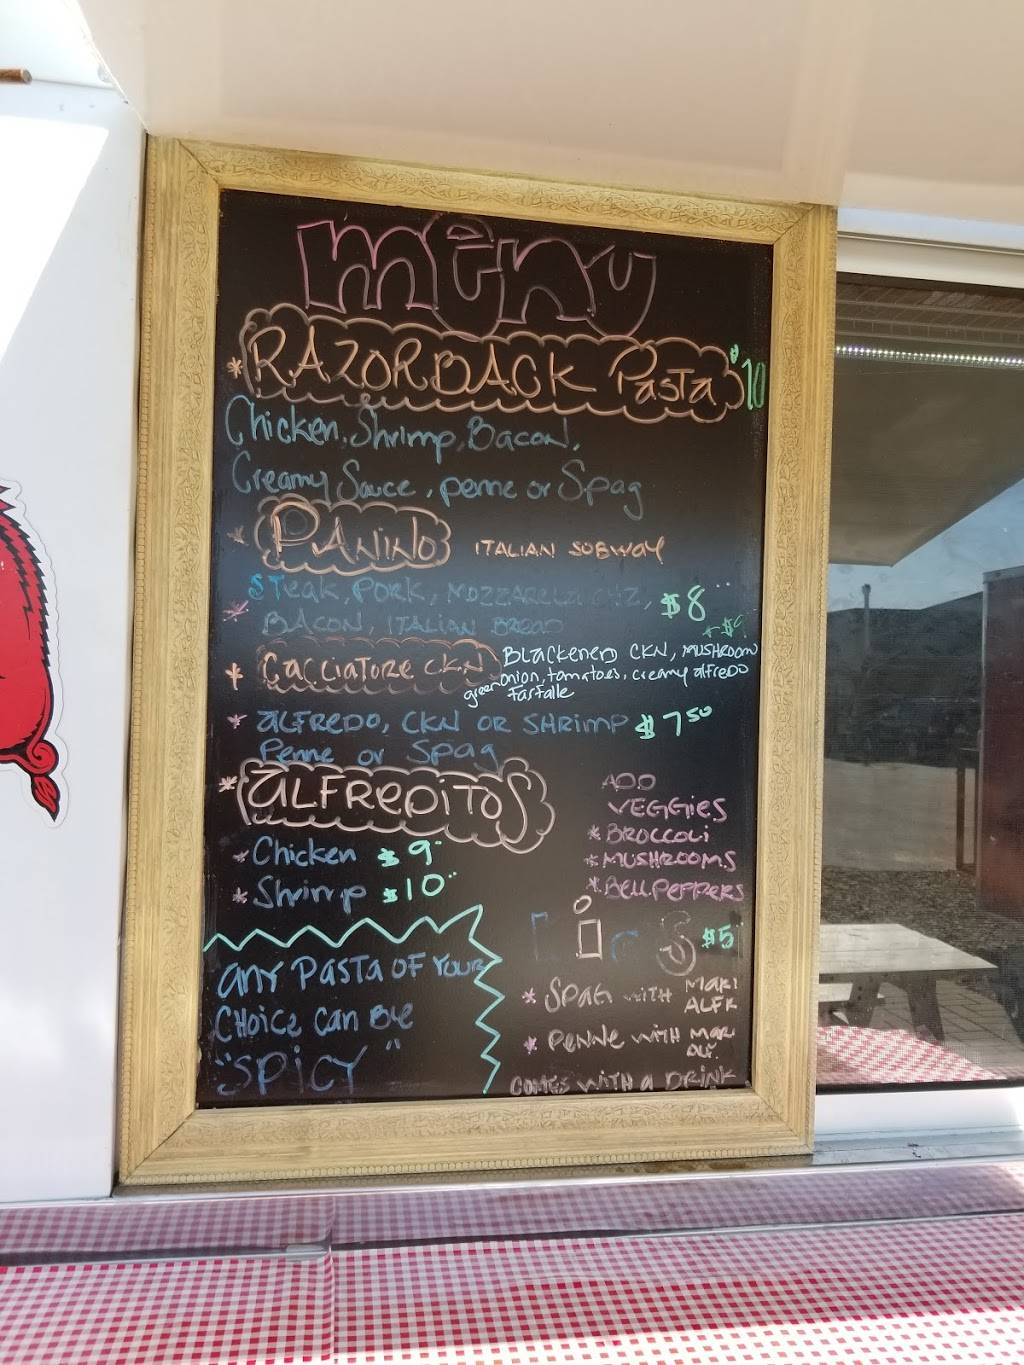 menu
* RAZORBACK Pasta $10
Chicken, Shrimp, Bacon,
Creamy Sauce, penne or Spag
* PANiNO ITALIAN SUBWAY
STeak, PORK, MOZZARELLA CHZ, $8
* BACON, ITALIAN BREAD
* CACCiATORE CKN BLackeNED CKN, MUSHROOM
green onion, tomatoes, creamy alfredo
farfalle $9
* aLFREDO, CKN OR SHRimp $7.50
Penne or Spag
* aLFREDiTOS
* Chicken $9
* Shrimp $10
ADD
VEGGiES
* BROCCOLi
* MUSHROOMS
* BELL PEPPERS
any PaSTa OF YOUR
CHOiCE can BE
"SPiCY"
KiDS $5
* SPAG WITH MARI
ALFR
* PENNE WITH MAR
OR
COMES WITH a DRINK